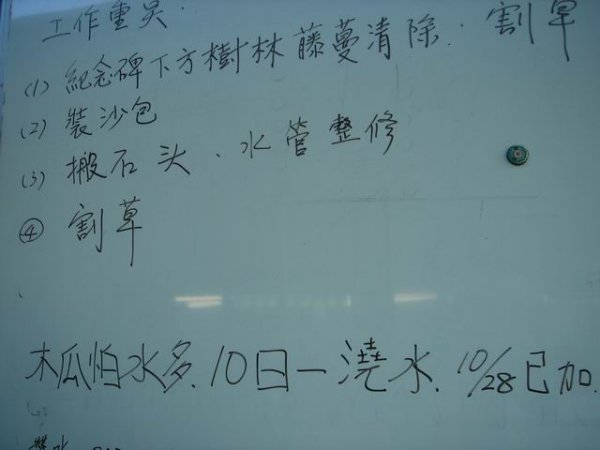 工作重點：
(1) 紀念碑下方樹林藤蔓清除、割草
(2) 裝沙包
(3) 搬石头、水管整修
④ 割草
木瓜怕水多、10日一澆水、10/28已加